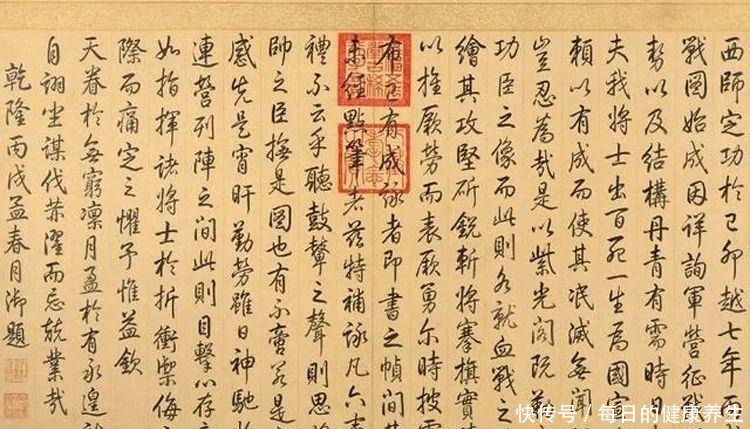 西師定功於己卯越七年丙
戰圖始成因詳詢軍營征戰
勢以及結構丹青有需時日
夫我將士出百死一生為國家
賴以有成而使其泯滅無聞
豈忍為哉是以紫光閣既
功臣之像而此則各就血戰之
繪其攻堅斫銳斬將搴旗實
以旌厥勞而表厥勇尔時披
布已有成詠者即書之幀間其
未經點筆者茲特補詠凡六
禮不云乎聽鼓鼙之聲則思
帥之臣撫是圖也有不啻若是
感先是宵旰勤勞雖日神馳於
連營列陣之間此則目擊以存
如指揮諸將士於折衝禦侮
際而痛定之懼予惟益欽
天眷於無窮凜月盈於有永遑
自詡坐謀伐濯而忘兢業哉
乾隆丙戌孟春月御題
快传号 / 每日的健康养生